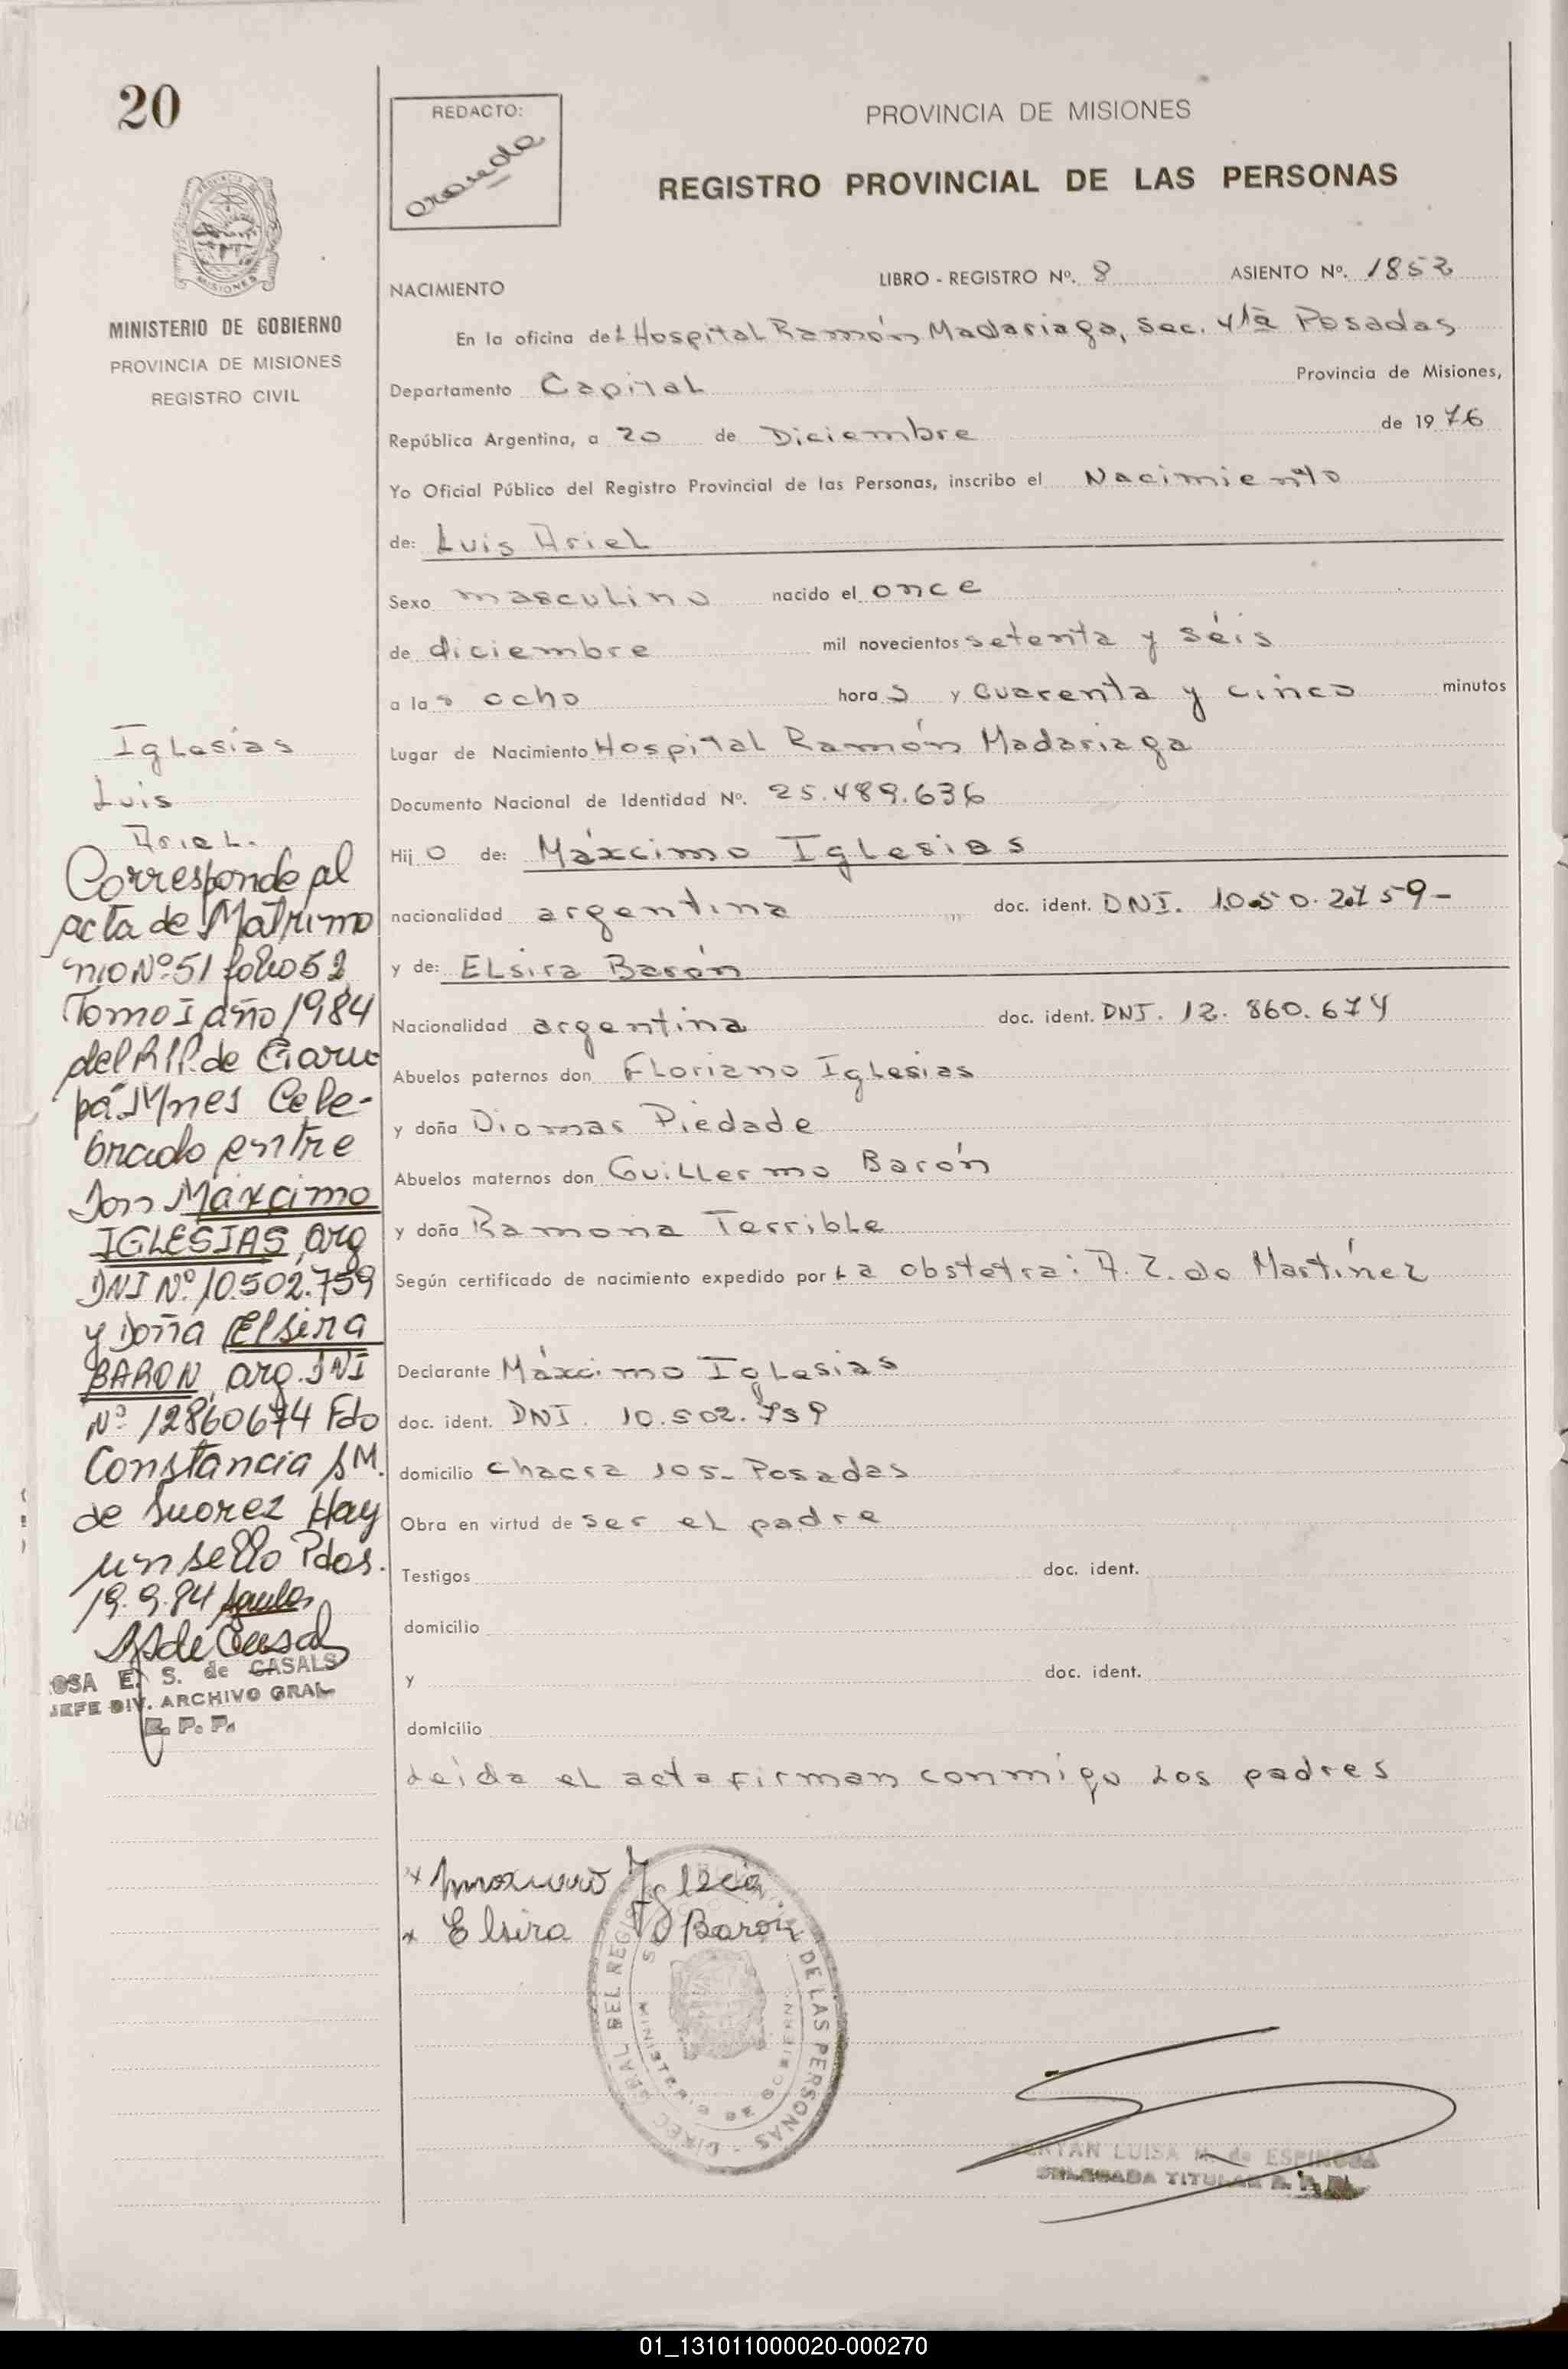 20
REDACTO:
PROVINCIA DE MISIONES
REGISTRO PROVINCIAL DE LAS PERSONAS
PROVINCIA
MISIONES
MINISTERIO DE GOBIERNO
PROVINCIA DE MISIONES
REGISTRO CIVIL
NACIMIENTO
LIBRO - REGISTRO Nº. 8 ASIENTO Nº. 1852
En la oficina del Hospital Ramón Madariaga, Sec. 4ta Posadas
Departamento Capital Provincia de Misiones,
República Argentina, a 20 de Diciembre de 1976
Yo Oficial Público del Registro Provincial de las Personas, inscribo el Nacimiento
de: Luis Ariel
Sexo masculino nacido el once
de diciembre mil novecientos setenta y séis
a las ocho horas y cuarenta y cinco minutos
Lugar de Nacimiento Hospital Ramón Madariaga
Documento Nacional de Identidad Nº. 25.489.636
Hijo de: Máxcimo Iglesias
nacionalidad argentina doc. ident. DNI. 10.50.2.759-
y de: Elsira Barón
Nacionalidad argentina doc. ident. DNI. 12.860.674
Abuelos paternos don Floriano Iglesias
y doña Diomar Piedade
Abuelos maternos don Guillermo Barón
y doña Ramona Terrible
Según certificado de nacimiento expedido por la obstetra: A. Z. de Martínez
Declarante Máxcimo Iglesias
doc. ident. DNI. 10.502.759
domicilio chacra 105- Posadas
Obra en virtud de ser el padre
Testigos doc. ident.
domicilio
y doc. ident.
domicilio
Leida el acta firman conmigo los padres
Iglesias
Luis
Ariel.
Corresponde al
acta de Matrimo
nio Nº 51 folio 52
Tomo I año 1984
del R.P.P. de Garu
pá Mnes Cele-
brado entre
Don Máxcimo
IGLESIAS, arg
DNI Nº 10.502.759
y Doña Elsira
BARON, arg. DNI
Nº 12860674 Fdo
Constancia S M.
de Suarez Hay
un sello Pdas.
19.9.84
OSA E. S. de CASALS
JEFE DIV. ARCHIVO GRAL
R. P. P.
x Elsira Baron
DIREC GRAL DEL REGIS DE LAS PERSONAS
MINISTERIO DE GOBIERNO
LUISA M. de ESPINOSA
DELEGADA TITULAR
01_131011000020-000270